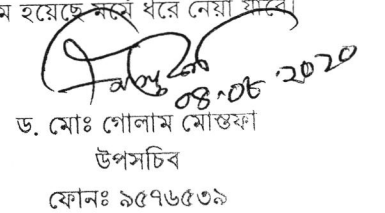 হয়েছে মর্মে ধরে নেয়া যাবে।
08.06.2020
ড. মোঃ গোলাম মোস্তফা
উপসচিব
ফোনঃ ৯৫৭৬৫৩৯